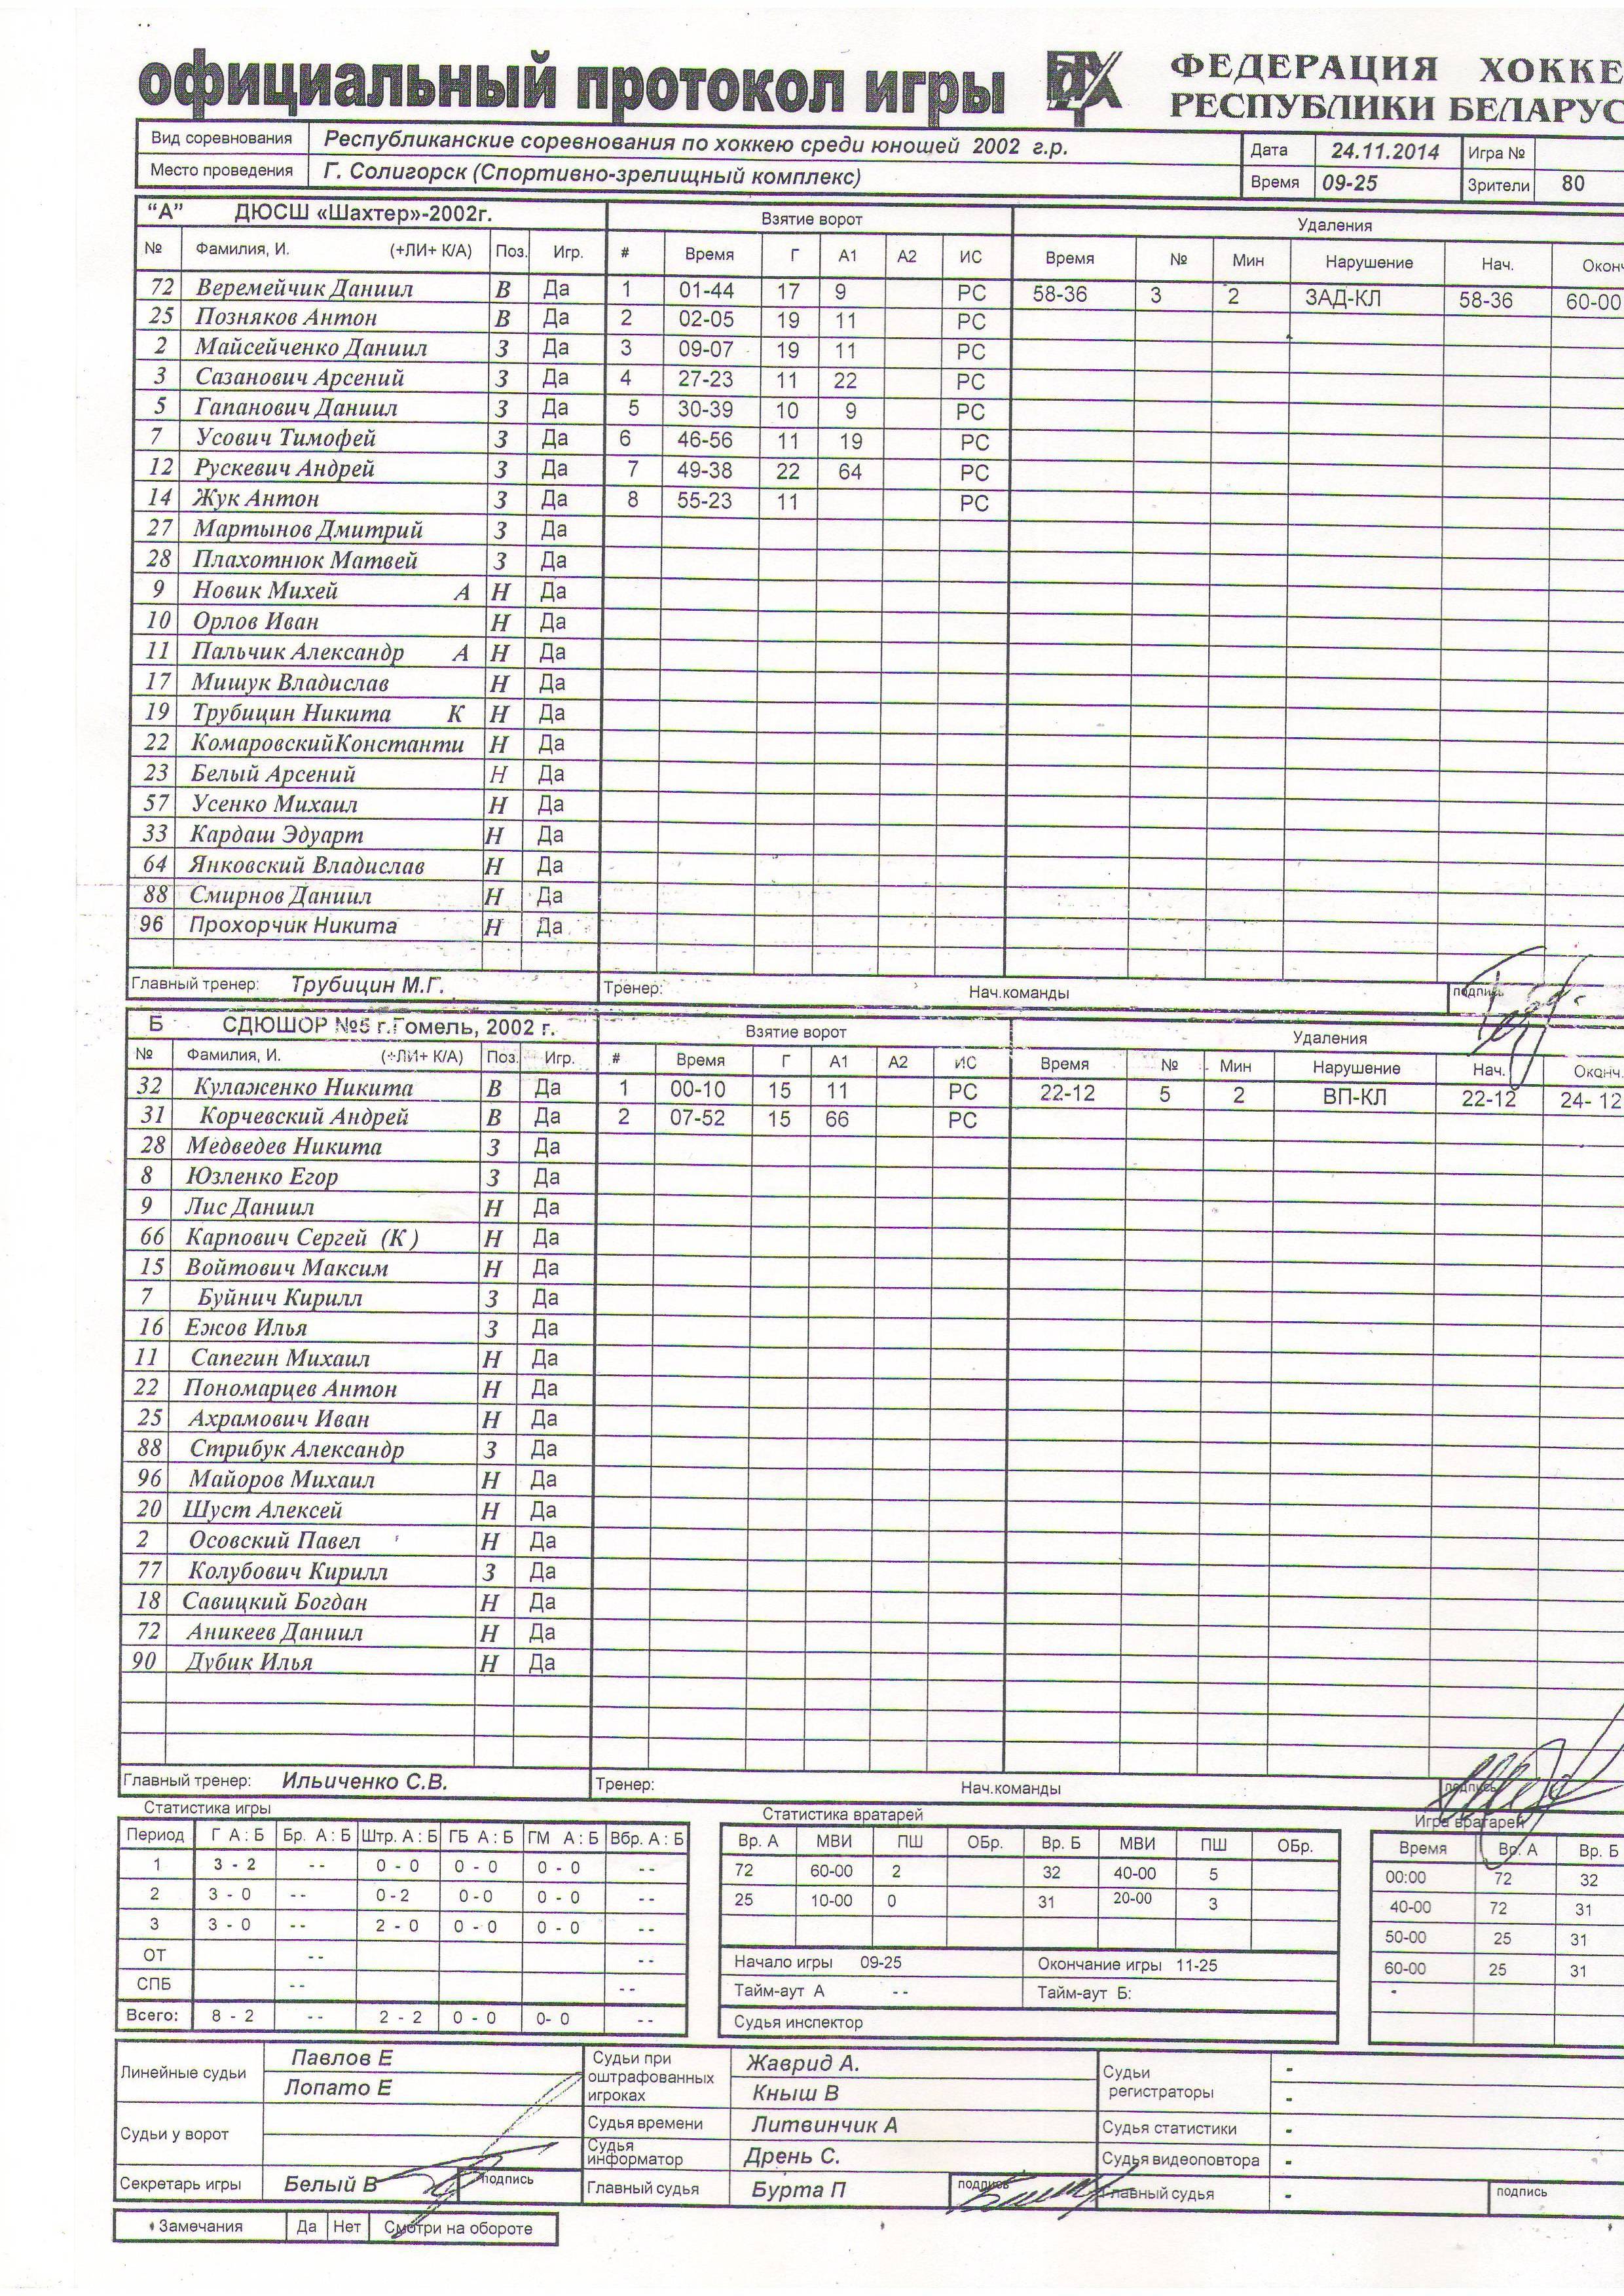 официальный протокол игры ФЕДЕРАЦИЯ ХОККЕ
РЕСПУБЛИКИ БЕЛАРУС
Вид соревнования Республиканские соревнования по хоккею среди юношей 2002 г.р. Дата 24.11.2014 Игра №
Место проведения Г. Солигорск (Спортивно-зрелищный комплекс) Время 09-25 Зрители 80
“А” ДЮСШ «Шахтер»-2002г. Взятие ворот Удаления
№ Фамилия, И. (+ЛИ+ К/А) Поз. Игр. # Время Г А1 А2 ИС Время № Мин Нарушение Нач. Оконч
72 Веремейчик Даниил В Да 1 01-44 17 9 РС 58-36 3 2 ЗАД-КЛ 58-36 60-00
25 Позняков Антон В Да 2 02-05 19 11 РС
2 Майсейченко Даниил З Да 3 09-07 19 11 РС
3 Сазанович Арсений З Да 4 27-23 11 22 РС
5 Гапанович Даниил З Да 5 30-39 10 9 РС
7 Усович Тимофей З Да 6 46-56 11 19 РС
12 Рускевич Андрей З Да 7 49-38 22 64 РС
14 Жук Антон З Да 8 55-23 11 РС
27 Мартынов Дмитрий З Да
28 Плахотнюк Матвей З Да
9 Новик Михей А Н Да
10 Орлов Иван Н Да
11 Пальчик Александр А Н Да
17 Мишук Владислав Н Да
19 Трубицин Никита К Н Да
22 КомаровскийКонстанти Н Да
23 Белый Арсений Н Да
57 Усенко Михаил Н Да
33 Кардаш Эдуарт Н Да
64 Янковский Владислав Н Да
88 Смирнов Даниил Н Да
96 Прохорчик Никита Н Да
Главный тренер: Трубицин М.Г. Тренер: Нач.команды подпись
Б СДЮШОР №5 г.Гомель, 2002 г. Взятие ворот Удаления
№ Фамилия, И. (+ЛИ+ К/А) Поз. Игр. # Время Г А1 А2 ИС Время № Мин Нарушение Нач. Оконч.
32 Кулаженко Никита В Да 1 00-10 15 11 РС 22-12 5 2 ВП-КЛ 22-12 24- 12
31 Корчевский Андрей В Да 2 07-52 15 66 РС
28 Медведев Никита З Да
8 Юзленко Егор З Да
9 Лис Даниил Н Да
66 Карпович Сергей (К ) Н Да
15 Войтович Максим Н Да
7 Буйнич Кирилл З Да
16 Ежов Илья З Да
11 Сапегин Михаил Н Да
22 Пономарцев Антон Н Да
25 Ахрамович Иван Н Да
88 Стрибук Александр З Да
96 Майоров Михаил Н Да
20 Шуст Алексей Н Да
2 Осовский Павел Н Да
77 Колубович Кирилл З Да
18 Савицкий Богдан Н Да
72 Аникеев Даниил Н Да
90 Дубик Илья Н Да
Главный тренер: Ильиченко С.В. Тренер: Нач.команды подпись
Статистика игры Статистика вратарей Игра вратарей
Период Г А : Б Бр. А : Б Штр. А : Б ГБ А : Б ГМ А : Б Вбр. А : Б Вр. А МВИ ПШ ОБр. Вр. Б МВИ ПШ ОБр. Время Вр. А Вр. Б
1 3 - 2 - - 0 - 0 0 - 0 0 - 0 - - 72 60-00 2 32 40-00 5 00:00 72 32
2 3 - 0 - - 0-2 0-0 0 - 0 - - 25 10-00 0 31 20-00 3 40-00 72 31
3 3 - 0 - - 2 - 0 0 - 0 0 - 0 - - 50-00 25 31
ОТ - - - - Начало игры 09-25 Окончание игры 11-25 60-00 25 31
СПБ - - - - Тайм-аут А - - Тайм-аут Б: -
Всего: 8 - 2 - - 2 - 2 0 - 0 0- 0 - - Судья инспектор
Линейные судьи Павлов Е Судьи при оштрафованных игроках Жаврид А. Судьи регистраторы -
Лопато Е Кныш В -
Судьи у ворот Судья времени Литвинчик А Судья статистики -
Судья информатор Дрень С. Судья видеоповтора -
Секретарь игры Белый В подпись Главный судья Бурта П подпись Главный судья - подпись
Замечания Да Нет Смотри на обороте